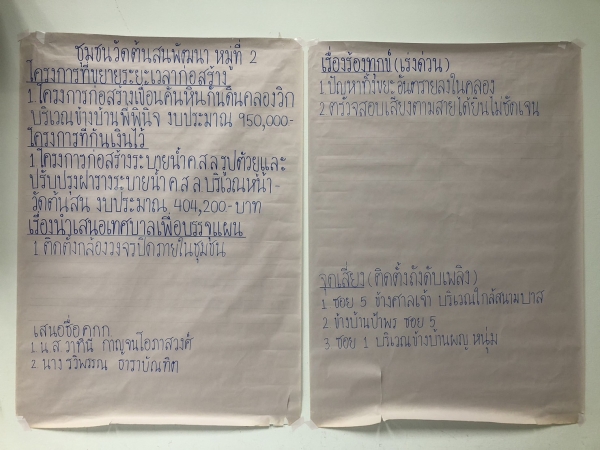 ชุมชนวัดต้นสนพัฒนา หมู่ที่ 2
โครงการที่ขยายระยะเวลาก่อสร้าง
1 โครงการก่อสร้างเขื่อนค้นหินกันดินคลองวิก
บริเวณข้างบ้านพี่พินิจ งบประมาณ 950,000-
โครงการที่กันเงินไว้
1 โครงการก่อสร้างระบายน้ำ ค.ส.ล รูปตัวยูและ
ปรับปรุงฝารางระบายน้ำ ค.ส.ล บริเวณหน้า-
วัดต้นสน งบประมาณ 404,200-บาท
เรื่องนำเสนอเทศบาลเพื่อบรรจุแผน
1 ติดตั้งกล้องวงจรปิดภายในชุมชน
เสนอชื่อ คกก
1 น.ส.วาทินี กาญจนโอภาสวงศ์
2 นาง รวิพรรณ ธาราบัณฑิต
เรื่องร้องทุกข์ (เร่งด่วน)
1 ปัญหาทิ้งขยะอันตรายลงในคลอง
2 ตรวจสอบเสียงตามสายได้ยินไม่ชัดเจน
จุดเสี่ยง (ติดตั้งถังดับเพลิง)
1 ซอย 5 ข้างศาลเจ้า บริเวณใกล้สนามบาส
2 ข้างบ้านป้าพร ซอย 5
3 ซอย 1 บริเวณข้างบ้านผญ หนุ่ม